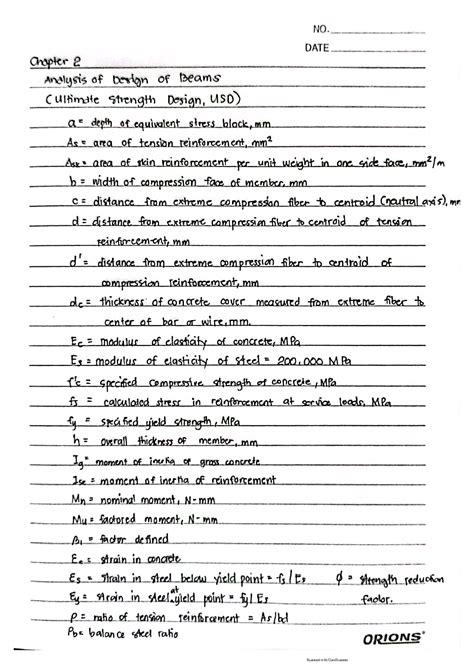 NO.
DATE
Chapter 2
Analysis of Design of Beams
(Ultimate Strength Design, USD)
a = depth of equivalent stress block, mm
As = area of tension reinforcement, mm²
Ask = area of skin reinforcement per unit weight in one side face, mm²/m
b = width of compression face of member, mm
c = distance from extreme compression fiber to centroid (neutral axis), mm
d = distance from extreme compression fiber to centroid of tension
reinforcement, mm
d' = distance from extreme compression fiber to centroid of
compression reinforcement, mm
dc = thickness of concrete cover measured from extreme fiber to
center of bar or wire, mm.
Ec = modulus of elasticity of concrete, MPa
Es = modulus of elasticity of steel = 200,000 MPa
f'c = specified compressive strength of concrete, MPa
fs = calculated stress in reinforcement at service loads, MPa
fy = specified yield strength, MPa
h = overall thickness of member, mm
Ig = moment of inertia of gross concrete
Ise = moment of inertia of reinforcement
Mn = nominal moment, N-mm
Mu = factored moment, N-mm
β1 = factor defined
Ec = strain in concrete
Es = strain in steel below yield point = fs / Es ϕ = strength reduction
Ey = strain in steel at yield point = fy / Es factor.
ρ = ratio of tension reinforcement = As/bd
ρb = balance steel ratio
ORIONS